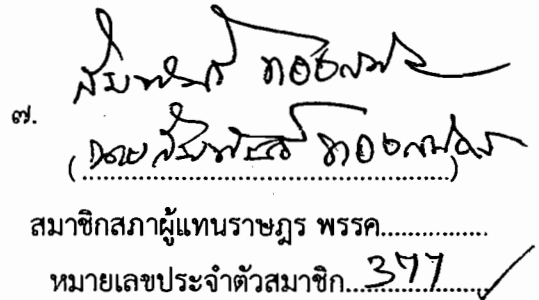 ๗.
สัมพันธ์ ทองสมัคร
(นายสัมพันธ์ ทองสมัคร)
สมาชิกสภาผู้แทนราษฎร พรรค................
หมายเลขประจำตัวสมาชิก....377......../